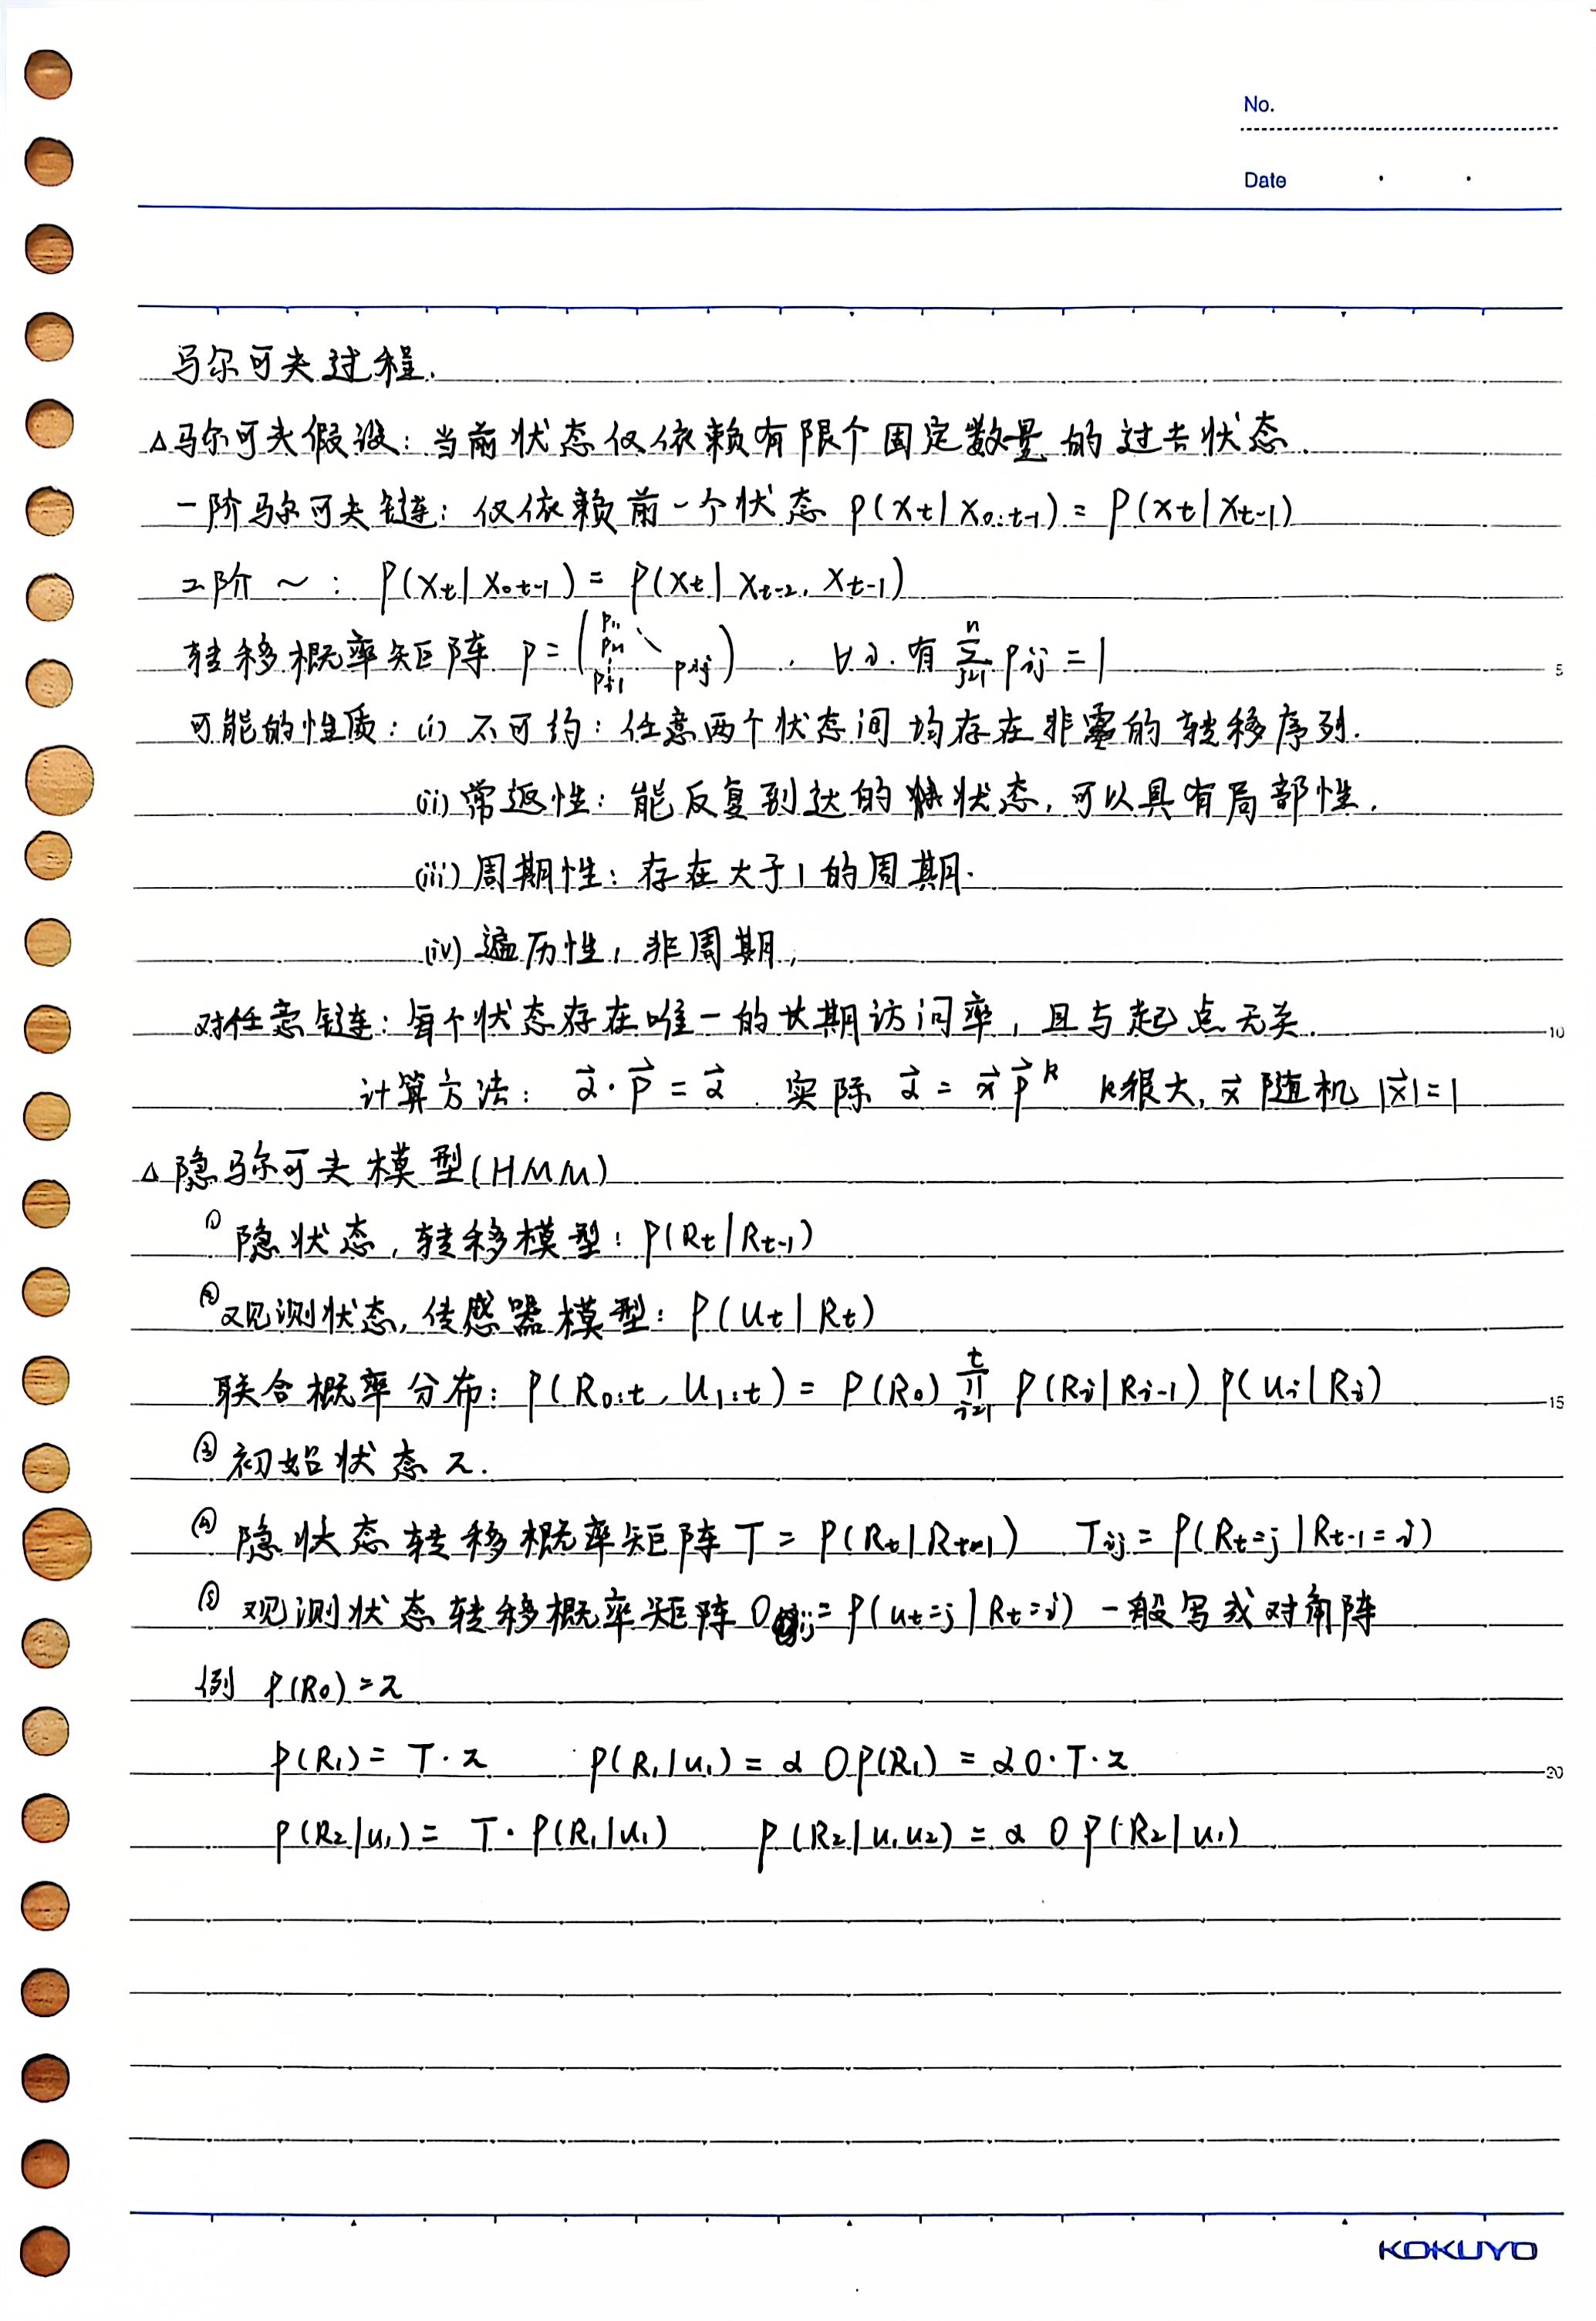 No.
Date
马尔可夫过程.
△马尔可夫假设：当前状态仅依赖有限个固定数量的过去状态.
一阶马尔可夫链：仅依赖前一个状态 P(Xt|X0:t-1) = P(Xt|Xt-1)
二阶 ～： P(Xt|X0:t-1) = P(Xt|Xt-2, Xt-1)
转移概率矩阵 P = (P11 P21 Pi1 ⋱ Pij) , ∀i. 有 ∑_{j=1}^{n} Pij = 1
可能的性质：(i) 不可约：任意两个状态间均存在非零的转移序列.
(ii) 常返性：能反复到达的状态, 可以具有局部性.
(iii) 周期性：存在大于1的周期.
(iv) 遍历性, 非周期,
对任意链：每个状态存在唯一的长期访问率, 且与起点无关.
计算方法： α⃗·P⃗ = α⃗ . 实际 α⃗ = x⃗P⃗^k k很大, x⃗ 随机 |x⃗|=1
△ 隐马尔可夫模型(HMM)
① 隐状态, 转移模型：P(Rt|Rt-1)
② 观测状态, 传感器模型：P(Ut|Rt)
联合概率分布：P(R0:t, U1:t) = P(R0) ∏_{i=1}^{t} P(Ri|Ri-1) P(Ui|Ri)
③ 初始状态 π.
④ 隐状态转移概率矩阵 T = P(Rt|Rt-1) Tij = P(Rt=j|Rt-1=i)
⑤ 观测状态转移概率矩阵 Oij = P(Ut=j|Rt=i) 一般写成对角阵
例 P(R0) = π
P(R1) = T·π P(R1|U1) = α O P(R1) = α O·T·π
P(R2|U1) = T·P(R1|U1) P(R2|U1 U2) = α O P(R2|U1)
5
10
15
20
KOKUYO